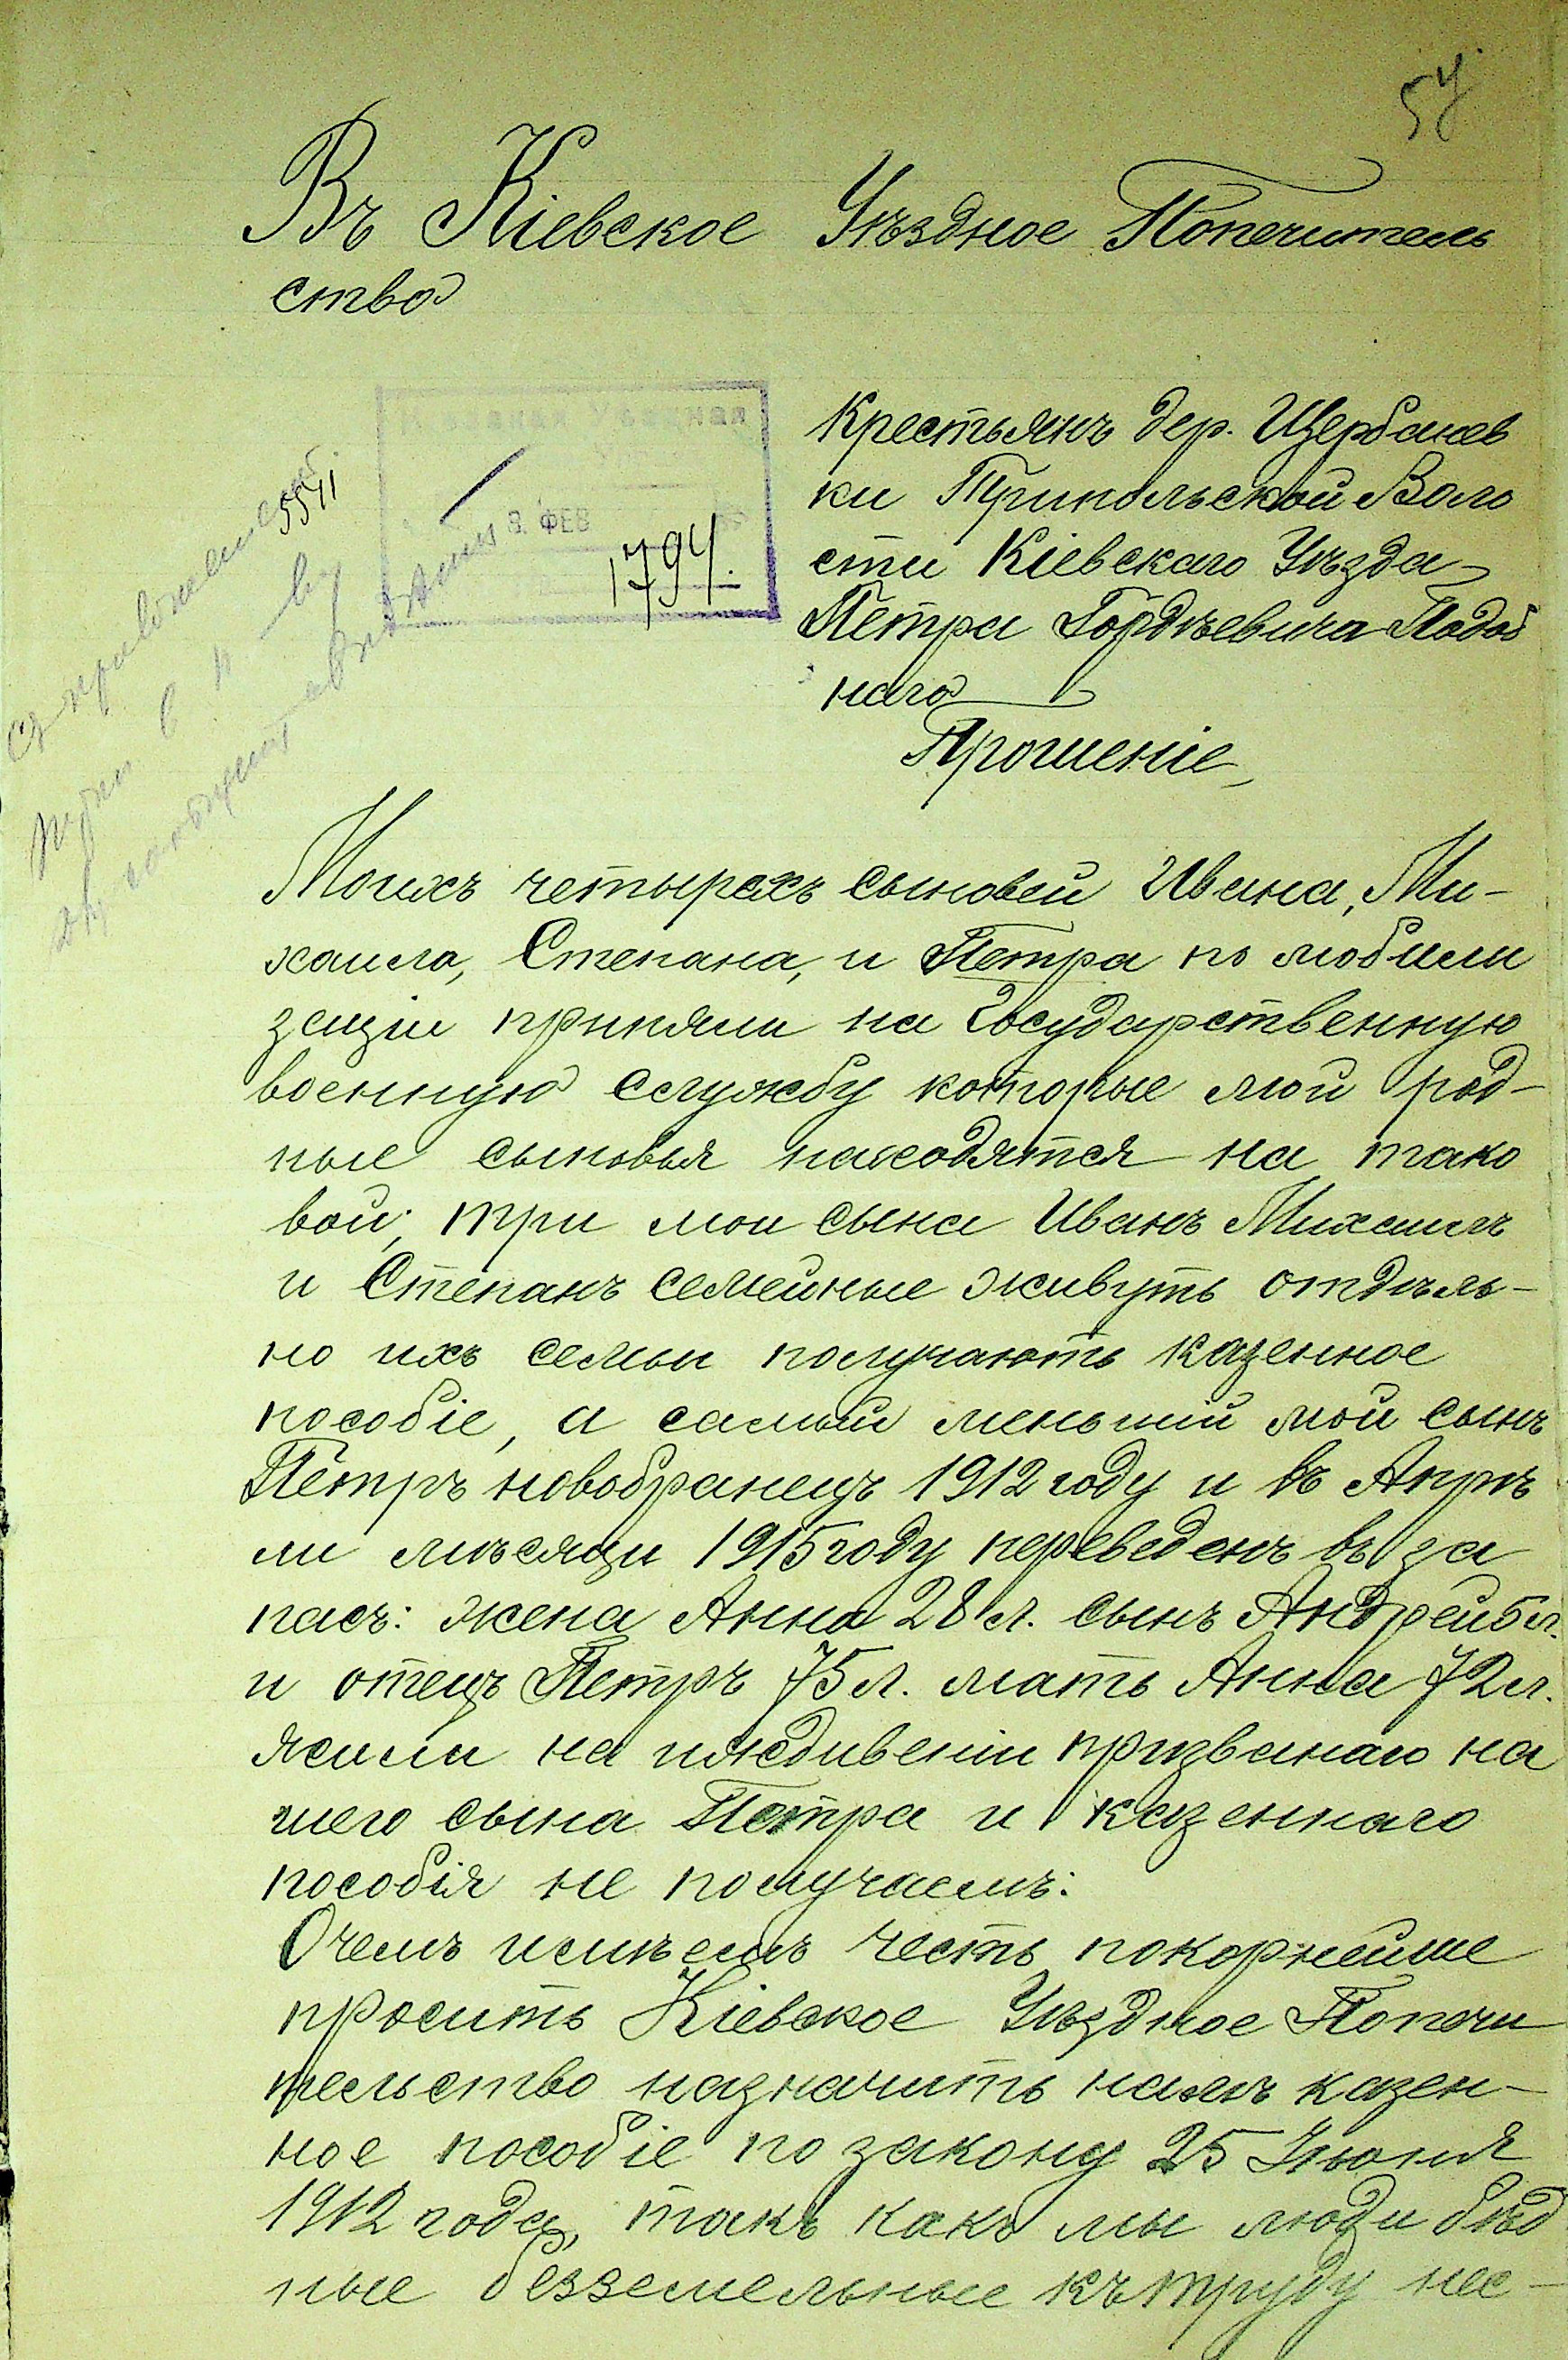 54
Въ Кіевское Уѣздное Попечитель
ство
Крестьянъ дер. Щербанев
ки Трипольской Воло
сти Кіевскаго Уѣзда
Петра Гордѣевича Подоб
наго
Прошеніе
5541
8. ФЕВ
1794.
Моихъ четырехъ сыновей Ивана, Ми-
хаила, Степана, и Петра по мобили
заціи приняли на Государственную
военную службу которые мои род-
ные сыновья находятся на тако
вой; три мои сына Иванъ Михаилъ
и Степанъ семейные живуть отдѣль-
но ихъ семьи получають казенное
пособіе, а самый меньшій мой сынъ
Петръ новобранецъ 1912 году и въ Апрѣ
ли мѣсяци 1915 году переведенъ въ за
пасъ: жена Анна 28 л. сынъ Андрей 5 л.
и отецъ Петръ 75 л. мать Анна 72 л.
жили на иждивеніи призванаго на
шего сына Петра и казеннаго
пособія не получаемъ:
Очемъ имѣемъ честь покорнейше
просить Кіевское Уѣздное Попечи
тельство назначить намъ казен-
ное пособіе по закону 25 Іюня
1912 года, такъ какъ мы люди бѣд
ные безземельные къ труду нес-